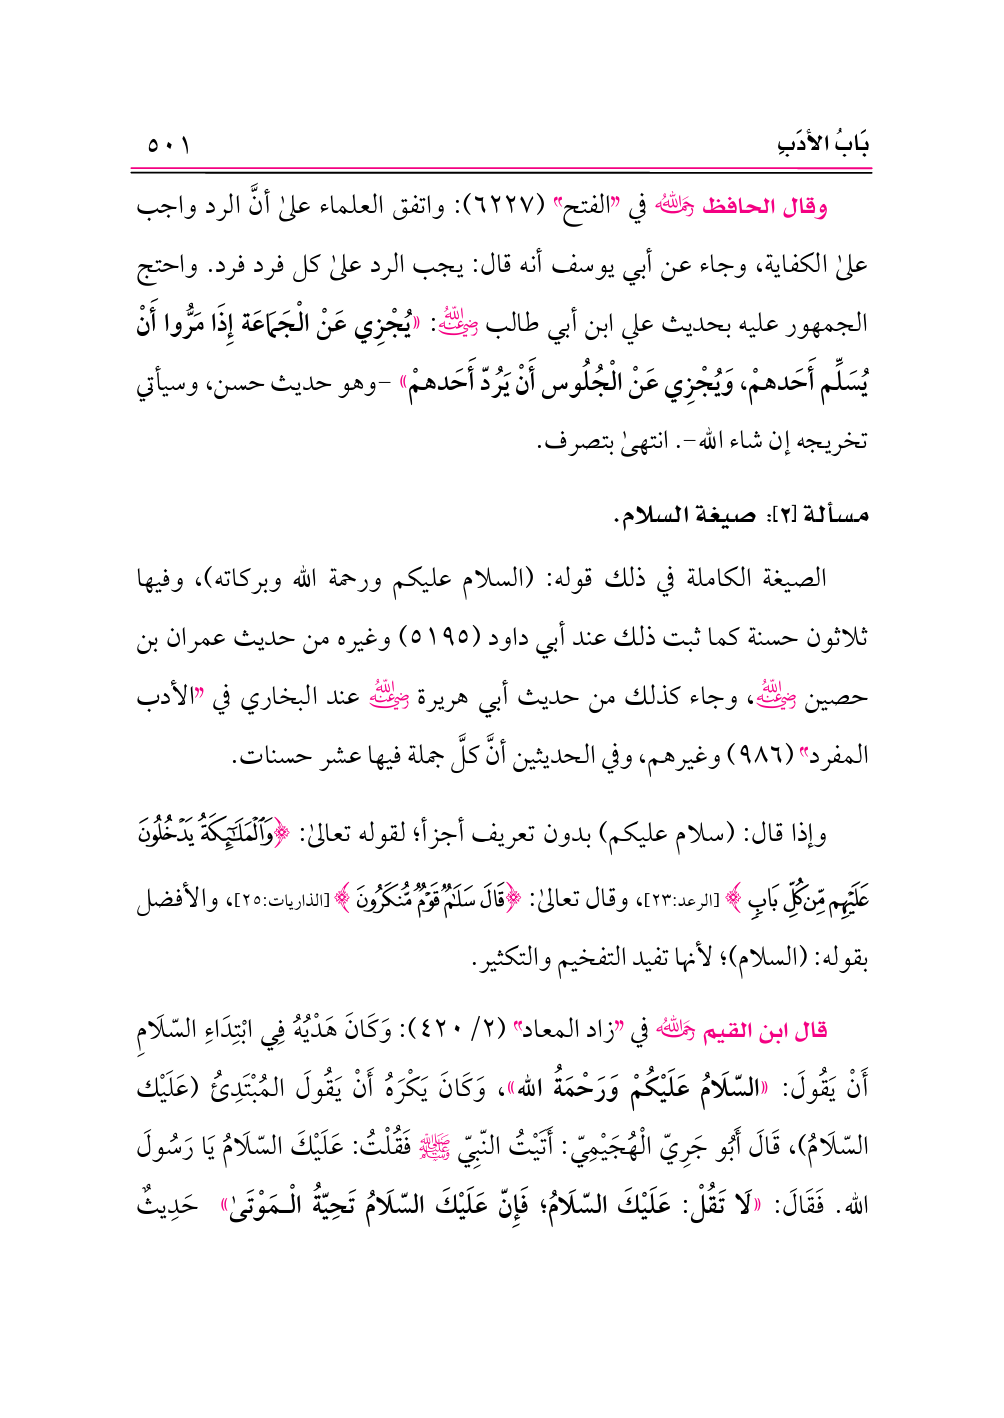 بَابُ الأدَبِ
٥٠١
وقال الحافظ رحمه الله في "الفتح" (٦٢٢٧): واتفق العلماء علىٰ أنَّ الرد واجب
علىٰ الكفاية، وجاء عن أبي يوسف أنه قال: يجب الرد علىٰ كل فرد فرد. واحتج
الجمهور عليه بحديث علي ابن أبي طالب رضي الله عنه: «يُجْزِي عَنْ الْجَمَاعَة إِذَا مَرُّوا أَنْ
يُسَلِّم أَحَدهمْ، وَيُجْزِي عَنْ الْجُلُوس أَنْ يَرُدّ أَحَدهمْ» -وهو حديث حسن، وسيأتي
تخريجه إن شاء الله-. انتهىٰ بتصرف.
مسألة [٢]: صيغة السلام.
الصيغة الكاملة في ذلك قوله: (السلام عليكم ورحمة الله وبركاته)، وفيها
ثلاثون حسنة كما ثبت ذلك عند أبي داود (٥١٩٥) وغيره من حديث عمران بن
حصين رضي الله عنه، وجاء كذلك من حديث أبي هريرة رضي الله عنه عند البخاري في "الأدب
المفرد" (٩٨٦) وغيرهم، وفي الحديثين أنَّ كلَّ جملة فيها عشر حسنات.
وإذا قال: (سلام عليكم) بدون تعريف أجزأ؛ لقوله تعالىٰ: ﴿وَٱلْمَلَٰٓئِكَةُ يَدْخُلُونَ
عَلَيْهِم مِّن كُلِّ بَابٍ﴾ [الرعد:٢٣]، وقال تعالىٰ: ﴿قَالَ سَلَٰمٌ قَوْمٌ مُّنكَرُونَ﴾ [الذاريات:٢٥]، والأفضل
بقوله: (السلام)؛ لأنها تفيد التفخيم والتكثير.
قال ابن القيم رحمه الله في "زاد المعاد" (٢/ ٤٢٠): وَكَانَ هَدْيُهُ فِي ابْتِدَاءِ السّلَامِ
أَنْ يَقُولَ: «السّلَامُ عَلَيْكُمْ وَرَحْمَةُ الله»، وَكَانَ يَكْرَهُ أَنْ يَقُولَ المُبْتَدِئُ (عَلَيْك
السّلَامُ)، قَالَ أَبُو جَرِيّ الْهُجَيْمِيّ: أَتَيْتُ النّبِيّ ﷺ فَقُلْتُ: عَلَيْكَ السّلَامُ يَا رَسُولَ
الله. فَقَالَ: «لَا تَقُلْ: عَلَيْكَ السّلَامُ؛ فَإِنّ عَلَيْكَ السّلَامُ تَحِيّةُ الْـمَوْتَىٰ» حَدِيثٌ